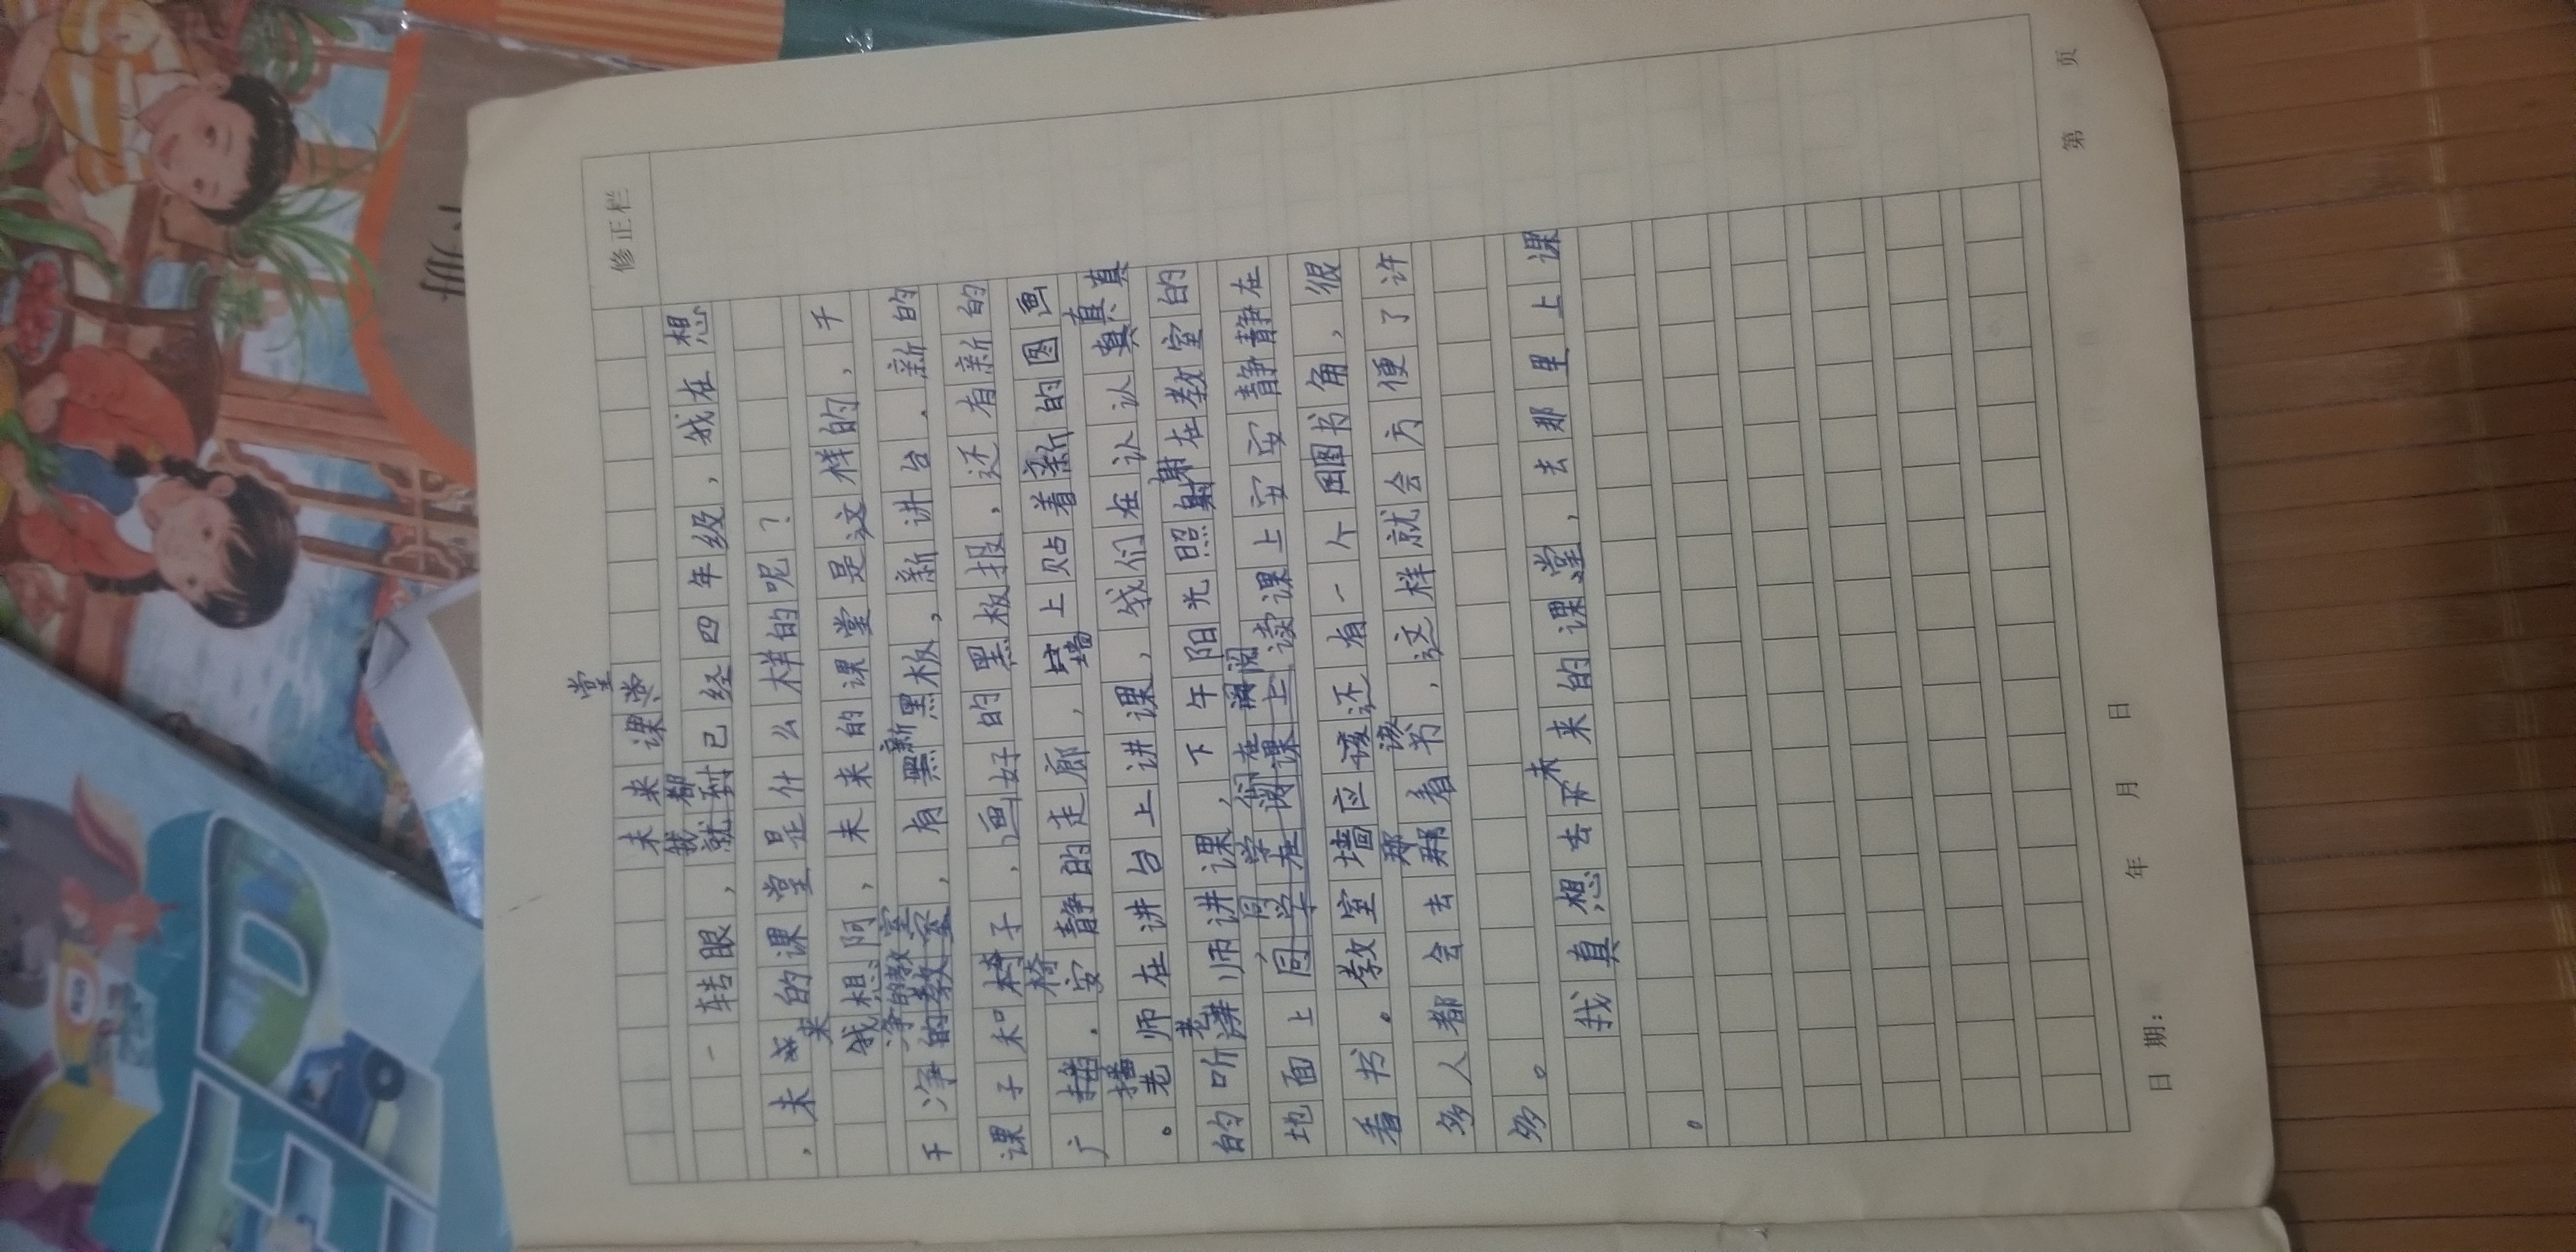 修正栏
堂
未来课堂
我都
一转眼，就到已经四年级，我在想
，未来的课堂是什么样的呢？
来
我想阿，未来的课堂是这样的，干
净的教室 新
干净的教室，有黑黑板，新讲台．新的
课子和椅子，画好的黑板报，还有新的
椅
广播．安静的走廊，墙上贴着新的图画
播 真真
。老师在讲台上讲课，我们在认认真真
老 射
的听讲师讲课，下午阳光照射在教室的
同学们在阅
地面上同学在阅课上读课上安安静静在
看书。教室墙应该还有一个图图书角，很
那 该
多人都会去那看书，这样就会方便了许
多。
未
我真想去未来的课堂，去那里上课
。
日期： 年 月 日
第 页